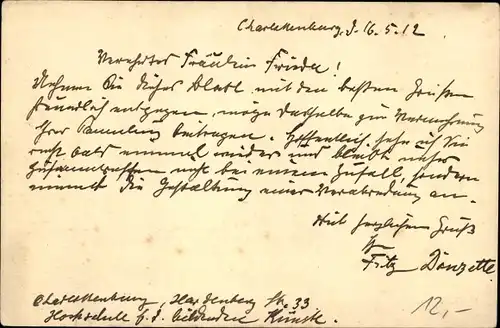 Charlottenburg, d. 16.5.12
Verehrtes Fräulein Frieda!
Nehmen Sie dieses Blatt mit den besten Grüßen
freundlich entgegen, möge dasselbe zur Vermehrung
Ihrer Sammlung beitragen. Hoffentlich sehe ich Sie
recht bald einmal wieder und bleibt unser
Zusammentreffen nicht bei einem Zufall, sondern
nimmt die Gestaltung einer Verabredung an.
Mit herzlichem Gruß
Fritz Donzette.
Charlottenburg, Hardenberg Str. 33
Hochschule f. d. bildenden Künste.
12,-